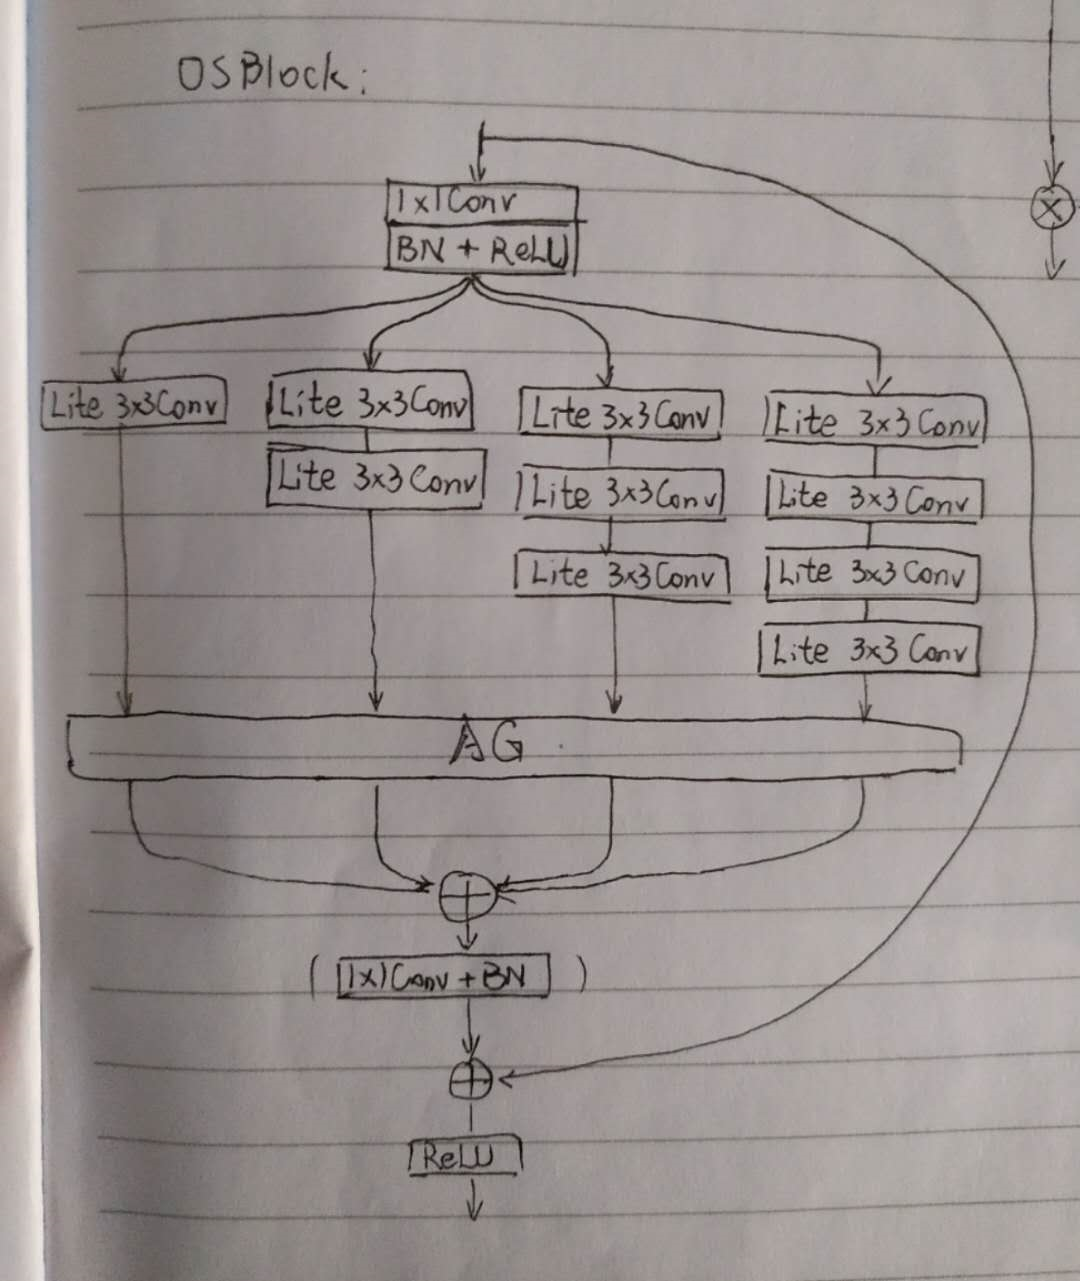 OSBlock:
1x1Conv
BN + ReLU
Lite 3x3Conv
Lite 3x3Conv
Lite 3x3Conv
Lite 3x3Conv
Lite 3x3Conv
Lite 3x3Conv
Lite 3x3Conv
Lite 3x3Conv
Lite 3x3Conv
Lite 3x3Conv
AG
(1x1Conv + BN)
ReLU